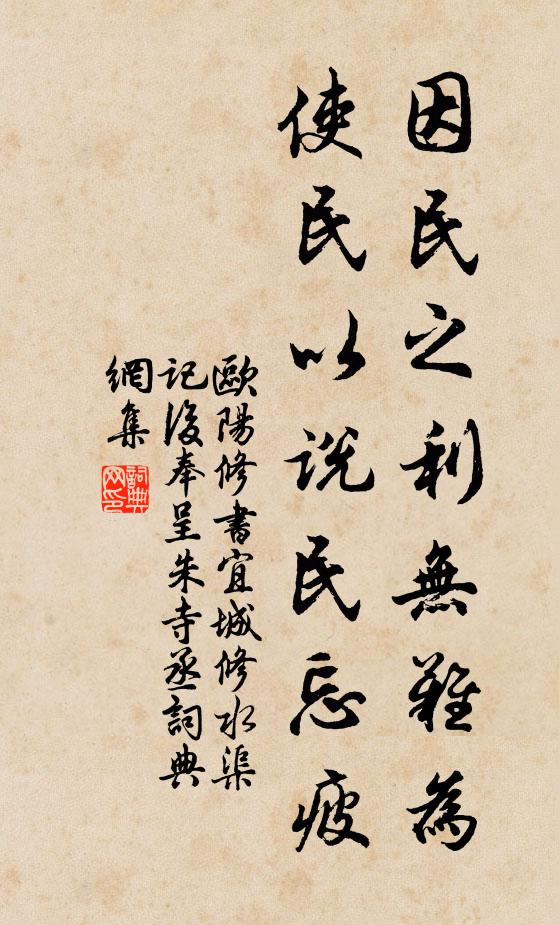 因民之利無難為
使民以說民忘疲
歐陽修書宜城修水渠
記後奉呈朱寺丞詞典
網集
詞典網印